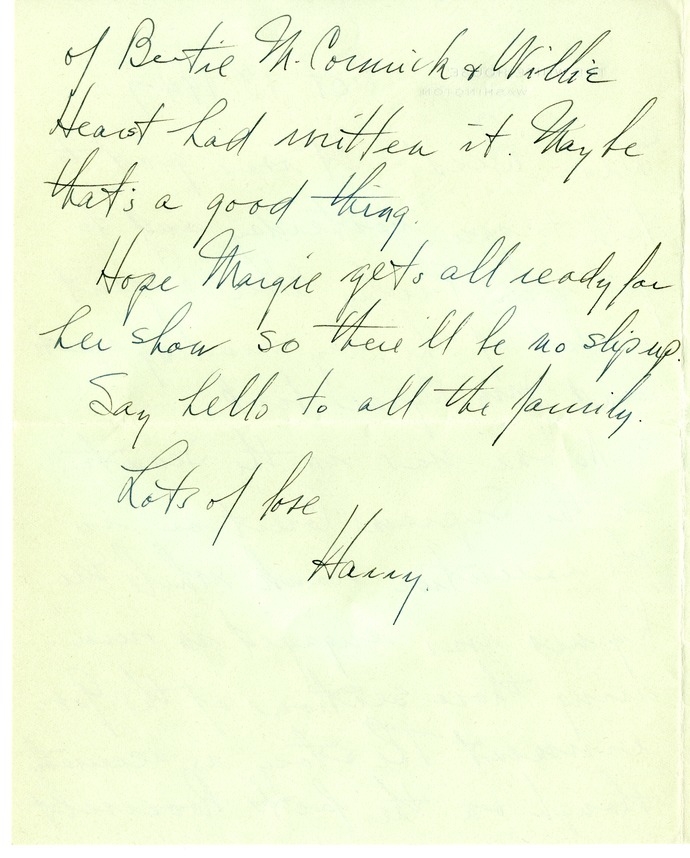 of Bertie McCormick & Willie
Hearst had written it. Maybe
that's a good thing.
Hope Margie gets all ready for
her show so there'll be no slip up.
Say hello to all the family.
Lots of love
Harry.